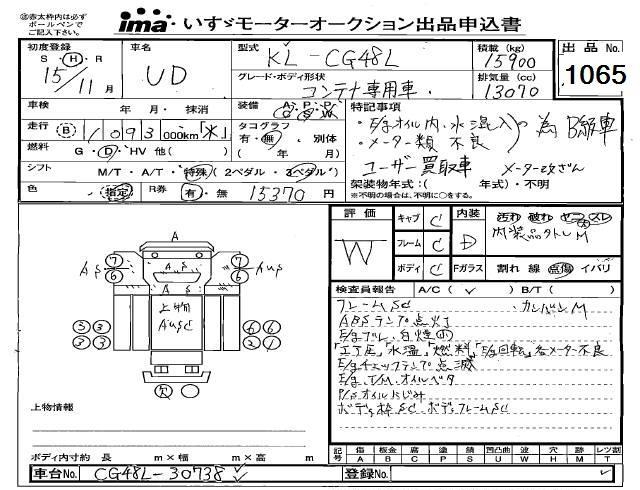 ㊟赤太枠内は必ず
ボールペンで
ご記入下さい。
ima いすゞモーターオークション出品申込書
初度登録 車名 型式 積載(kg) 出品No.
S・H・R UD KL-CG48L 15900 1065
15年11月 グレード・ボディ形状 排気量(cc)
コンテナ専用車 13070
車検 年 月・抹消 装備 A・P・P C・S・W 特記事項
走行 B 1093 000km「米」 タコグラフ ・E/gオイル内、水混入の為 B級車
有・無 別体 ・メーター類 不良
燃料 G・D・HV 他( ) ( 年 月) ユーザー買取車
シフト M/T・A/T・特殊(2ペダル・3ペダル) メーター改ざん
色 指定 R券 有・無 15370円 架装物年式:( 年式)・不明
※不明の場合は、不明に○をする。
評価 キャブ C 内装 汚れ 破れ ヤニ スレ
W フレーム C D 内装品タトレM
ボディ C Fガラス 割れ 線 点傷 イバリ
検査員報告 A/C( ✓ ) B/T( )
フレームSC カンバンM
ABSランプ点灯
E/gブレ、白煙小
「エア圧」「水温」「燃料」「E/g回転」各メーター不良
E/gチェックランプ点滅
E/g、T/M、オイルベタ
P/Sオイルにじみ
ボデー枠SC ボデーフレームSC
A
7 7
AS A AUS
6 6
上物
AUSC
3 3 6 6
3 3 2 1
欠
上物情報
ボディ内寸約 長 m×幅 m×高 m
記号 傷 板金 腐 塗 錆 凹凸曲 波 穴 跡 レツ割
A B C P S U W H M T
車台No. CG48L-30738 登録No.